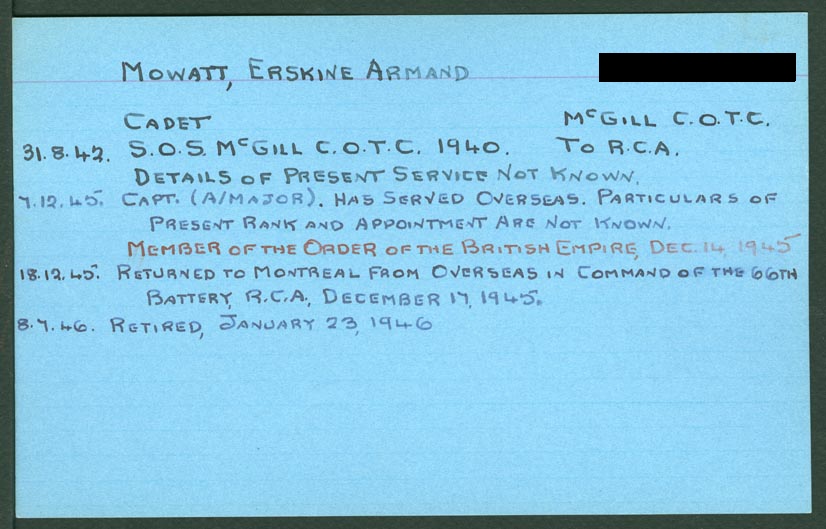 MOWATT, ERSKINE ARMAND
CADET McGILL C.O.T.C.
31.8.42. S.O.S. McGILL C.O.T.C. 1940. TO R.C.A.
DETAILS OF PRESENT SERVICE NOT KNOWN.
7.12.45. CAPT. (A/MAJOR). HAS SERVED OVERSEAS. PARTICULARS OF
PRESENT RANK AND APPOINTMENT ARE NOT KNOWN.
MEMBER OF THE ORDER OF THE BRITISH EMPIRE, DEC. 14, 1945
18.12.45. RETURNED TO MONTREAL FROM OVERSEAS IN COMMAND OF THE 66TH
BATTERY, R.C.A., DECEMBER 17, 1945.
8.7.46. RETIRED, JANUARY 23, 1946